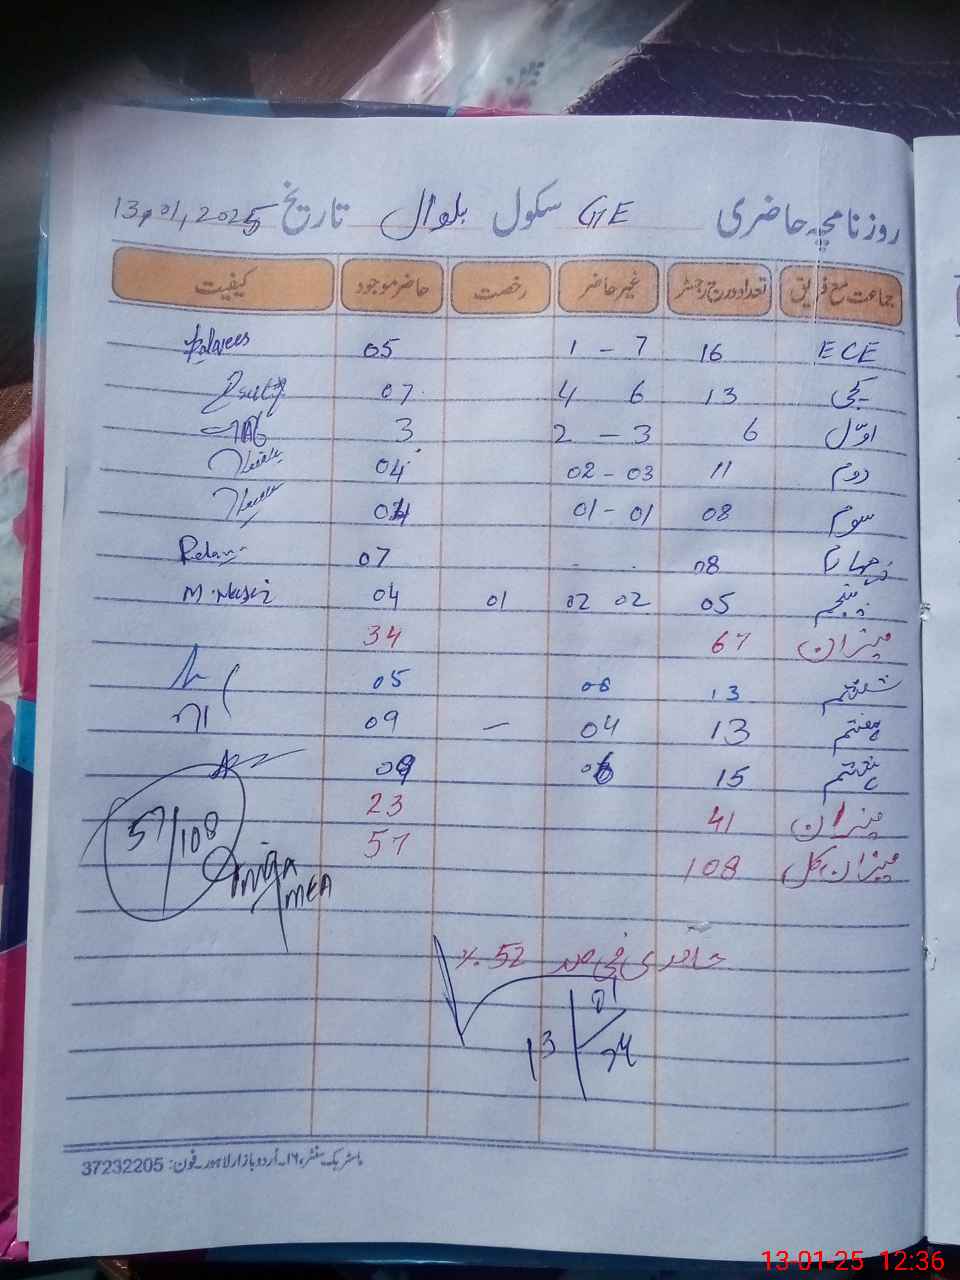 روزنامچہ حاضری GTE سکول بلوال تاریخ 13,01,2025
جماعت مع فریق تعداد درج رجسٹر غیر حاضر رخصت حاضر موجود کیفیت
ECE 16 1 - 7 05
کچی 13 4 6 07
اوّل 6 2 - 3 3
دوم 11 02 - 03 04
سوم 08 01 - 01 04
چہارم 08 . . 07
پنجم 05 02 02 01 04 M. Nasir
میزان 67 34
ششتم 13 06 05
ہفتم 13 04 — 09
ہشتم 15 06 09
میزان 41 23
میزان کل 108 57
57/108
MEA
حاضری فی صد 52 ٪
13 01
ماسٹر بک سنٹر، ۱۶۔اُردو بازار لاہور۔ فون: 37232205
13-01-25 12:36